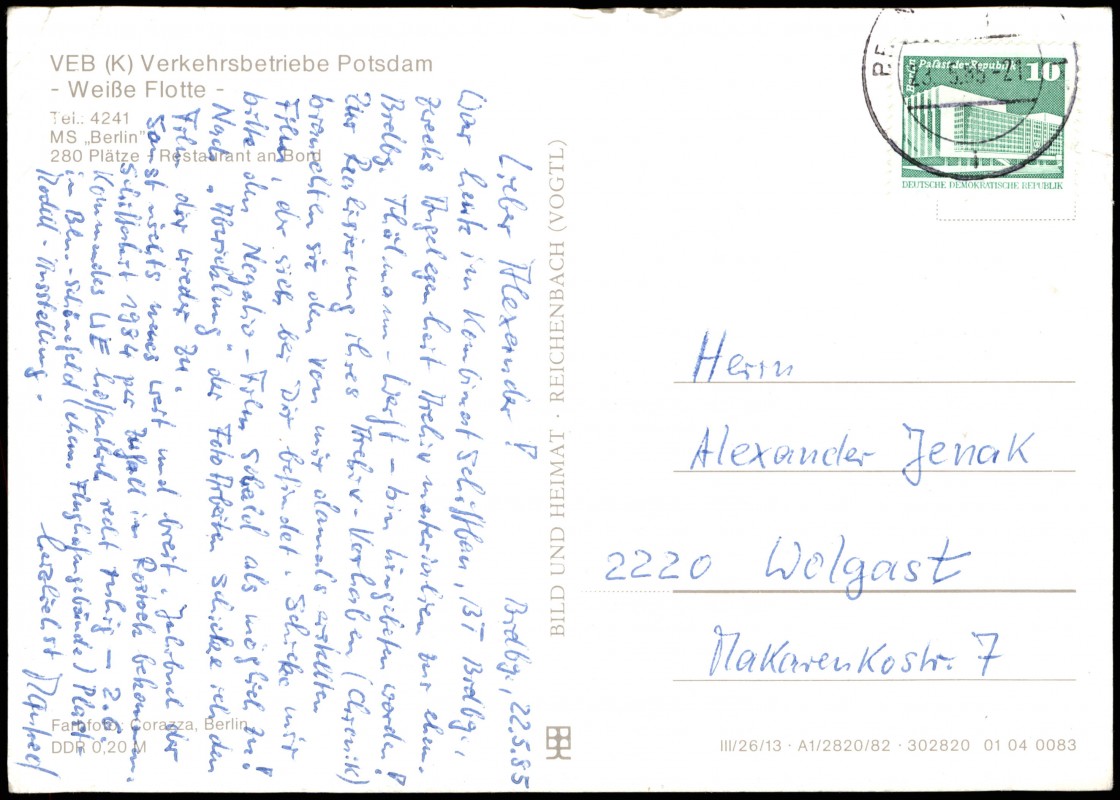 VEB (K) Verkehrsbetriebe Potsdam
- Weiße Flotte -
Tel.: 4241
MS „Berlin"
280 Plätze - Restaurant an Bord
Brdbg., 22.5.85
Lieber Alexander!
War heute im Kombinat Schiffbau, BT Brdbg.,
zwecks Angelegenheit Archivmaterialien zur ehem.
Brdbg. Thälmann-Werft - bin hingebeten worden!
Zur Realisierung ihres Archiv-Vorhaben (Chronik)
brauchten sie den von mir damals erstellten
Film, der sich bei Dir befindet. Schicke mir
bitte den Negativ-Film sobald als möglich zu!
Nach der Fotoarbeiten schicke ich den
Film dir wieder zu.
Sonst nichts neues weit und breit. Jahrbuch der
Schiffahrt 1984 per Zufall in Rostock bekommen.
Kommendes WE hoffentlich recht ruhig - 2.6.
in Bln.-Schönefeld (ehem. Flughafengebäude)
Modell-Ausstellung.
Herzlichst Manfred
Farbfoto: Corazza, Berlin
DDR 0,20 M
BILD UND HEIMAT · REICHENBACH (VOGTL)
Berlin Palast der Republik 10
DEUTSCHE DEMOKRATISCHE REPUBLIK
23. 5.85-21
Herrn
Alexander Jenak
2220 Wolgast
Makarenkostr. 7
III/26/13 · A1/2820/82 · 302820 01 04 0083